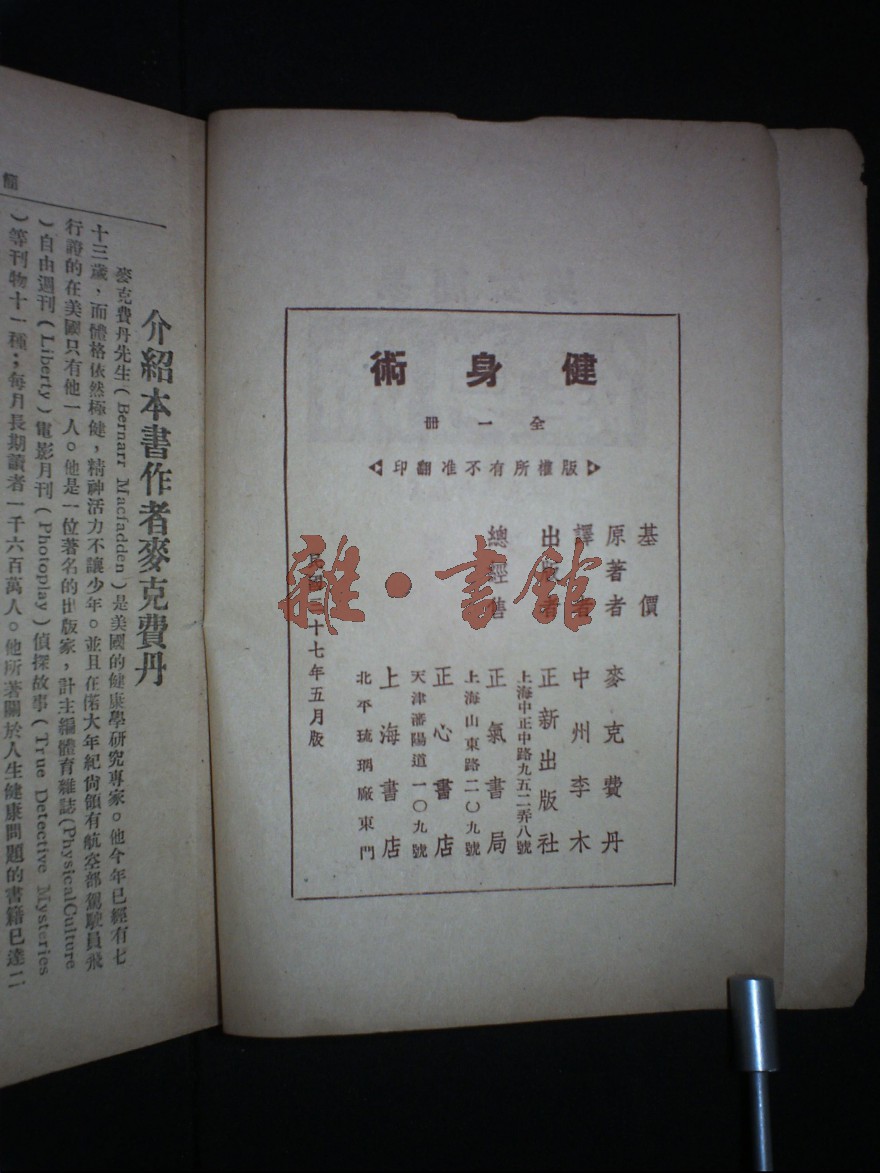 健身術
全一冊
版權所有不准翻印
基價
原著者 麥克費丹
譯者 中州李木
出版者 正新出版社
上海中正中路九五二弄八號
總經售 正氣書局
上海山東路二〇九號
正心書店
天津瀋陽道一〇九號
上海書店
北平琉璃廠東門
民國三十七年五月版
雜·書館
介紹本書作者麥克費丹
麥克費丹先生(Bernarr Macfadden)是美國的健康學研究專家。他今年已經有七
十三歲,而體格依然極健,精神活力不讓少年。並且在偌大年紀尙領有航空部駕駛員飛
行證的在美國只有他一人。他是一位著名的出版家,計主編體育雜誌(PhysicalCulture
)自由週刊(Liberty)電影月刊(Photoplay)偵探故事(True Detective Mysteries
)等刊物十一種;每月長期讀者一千六百萬人。他所著關於人生健康問題的書籍已達二